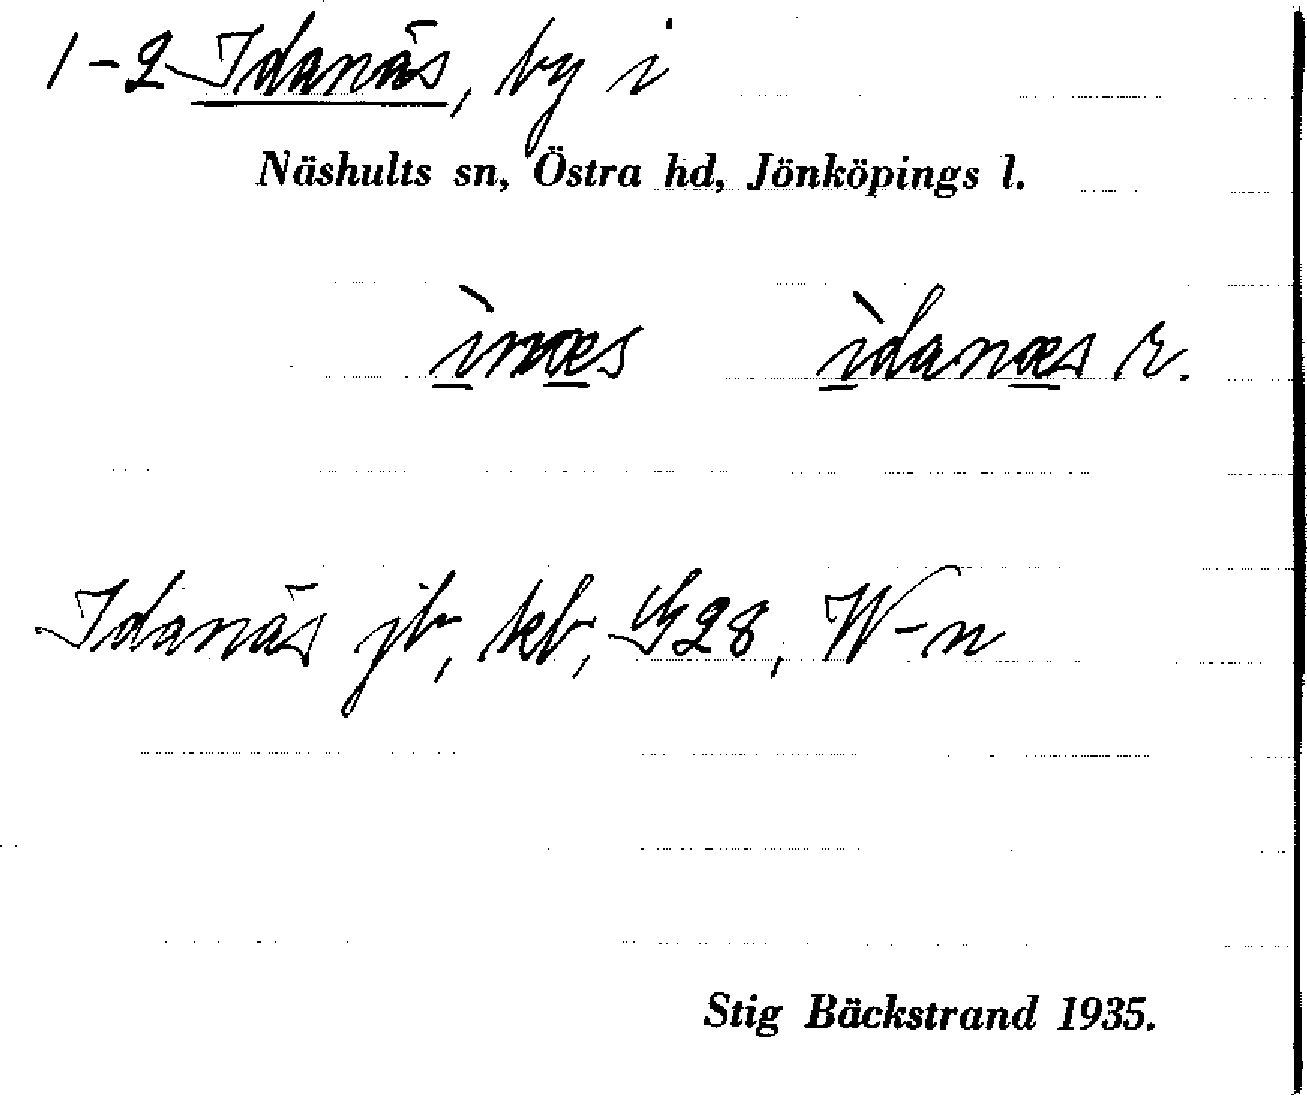 1-2 Idanäs, by i
Näshults sn, Östra hd, Jönköpings l.
ìnæs ìdanæs r.
Idanäs jb, kb, G28, W-n
Stig Bäckstrand 1935.